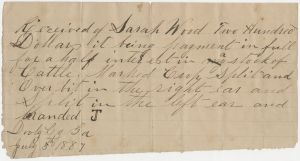 Received of Sarah Wood Two Hundred
Dollars it being payment in full
for a half interest in a stock of
Cattle Marked Crop Split and
Overbit in the right ear and
Split in the left ear and
branded J
July 8th 1887